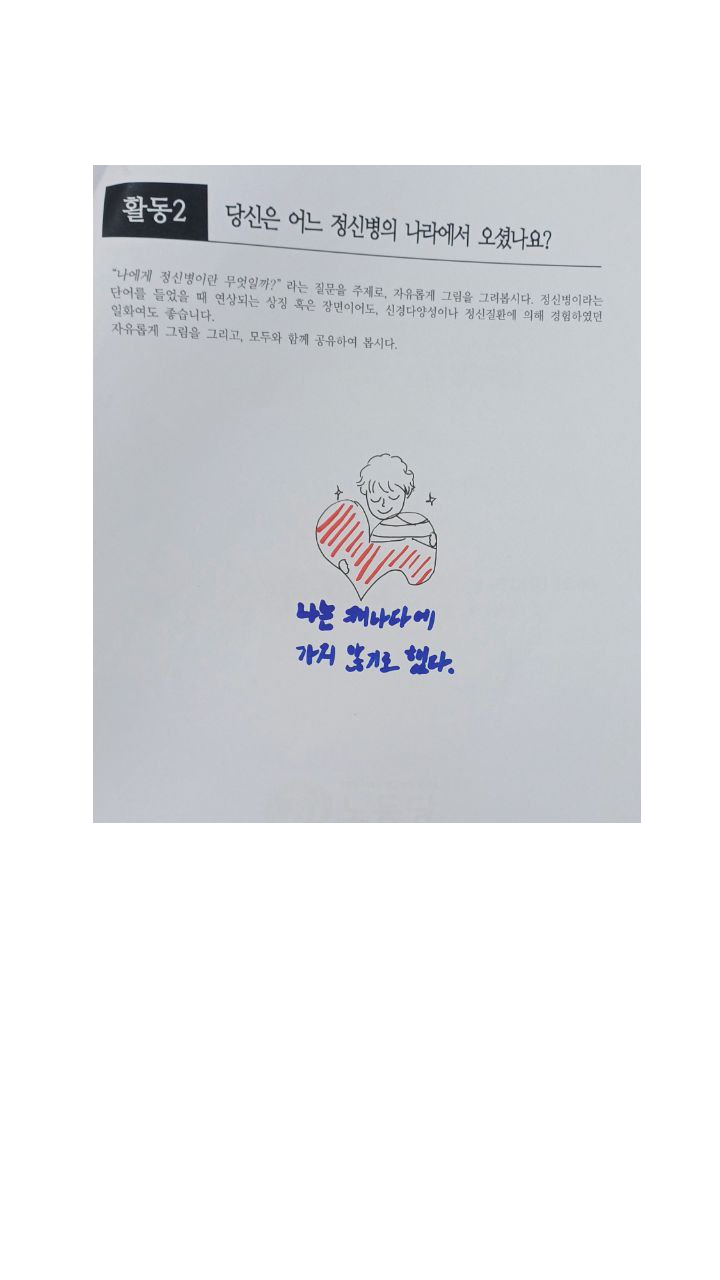 활동2
당신은 어느 정신병의 나라에서 오셨나요?
“나에게 정신병이란 무엇일까?” 라는 질문을 주제로, 자유롭게 그림을 그려봅시다. 정신병이라는
단어를 들었을 때 연상되는 상징 혹은 장면이어도, 신경다양성이나 정신질환에 의해 경험하였던
일화여도 좋습니다.
자유롭게 그림을 그리고, 모두와 함께 공유하여 봅시다.
나는 캐나다에
가지 않기로 했다.